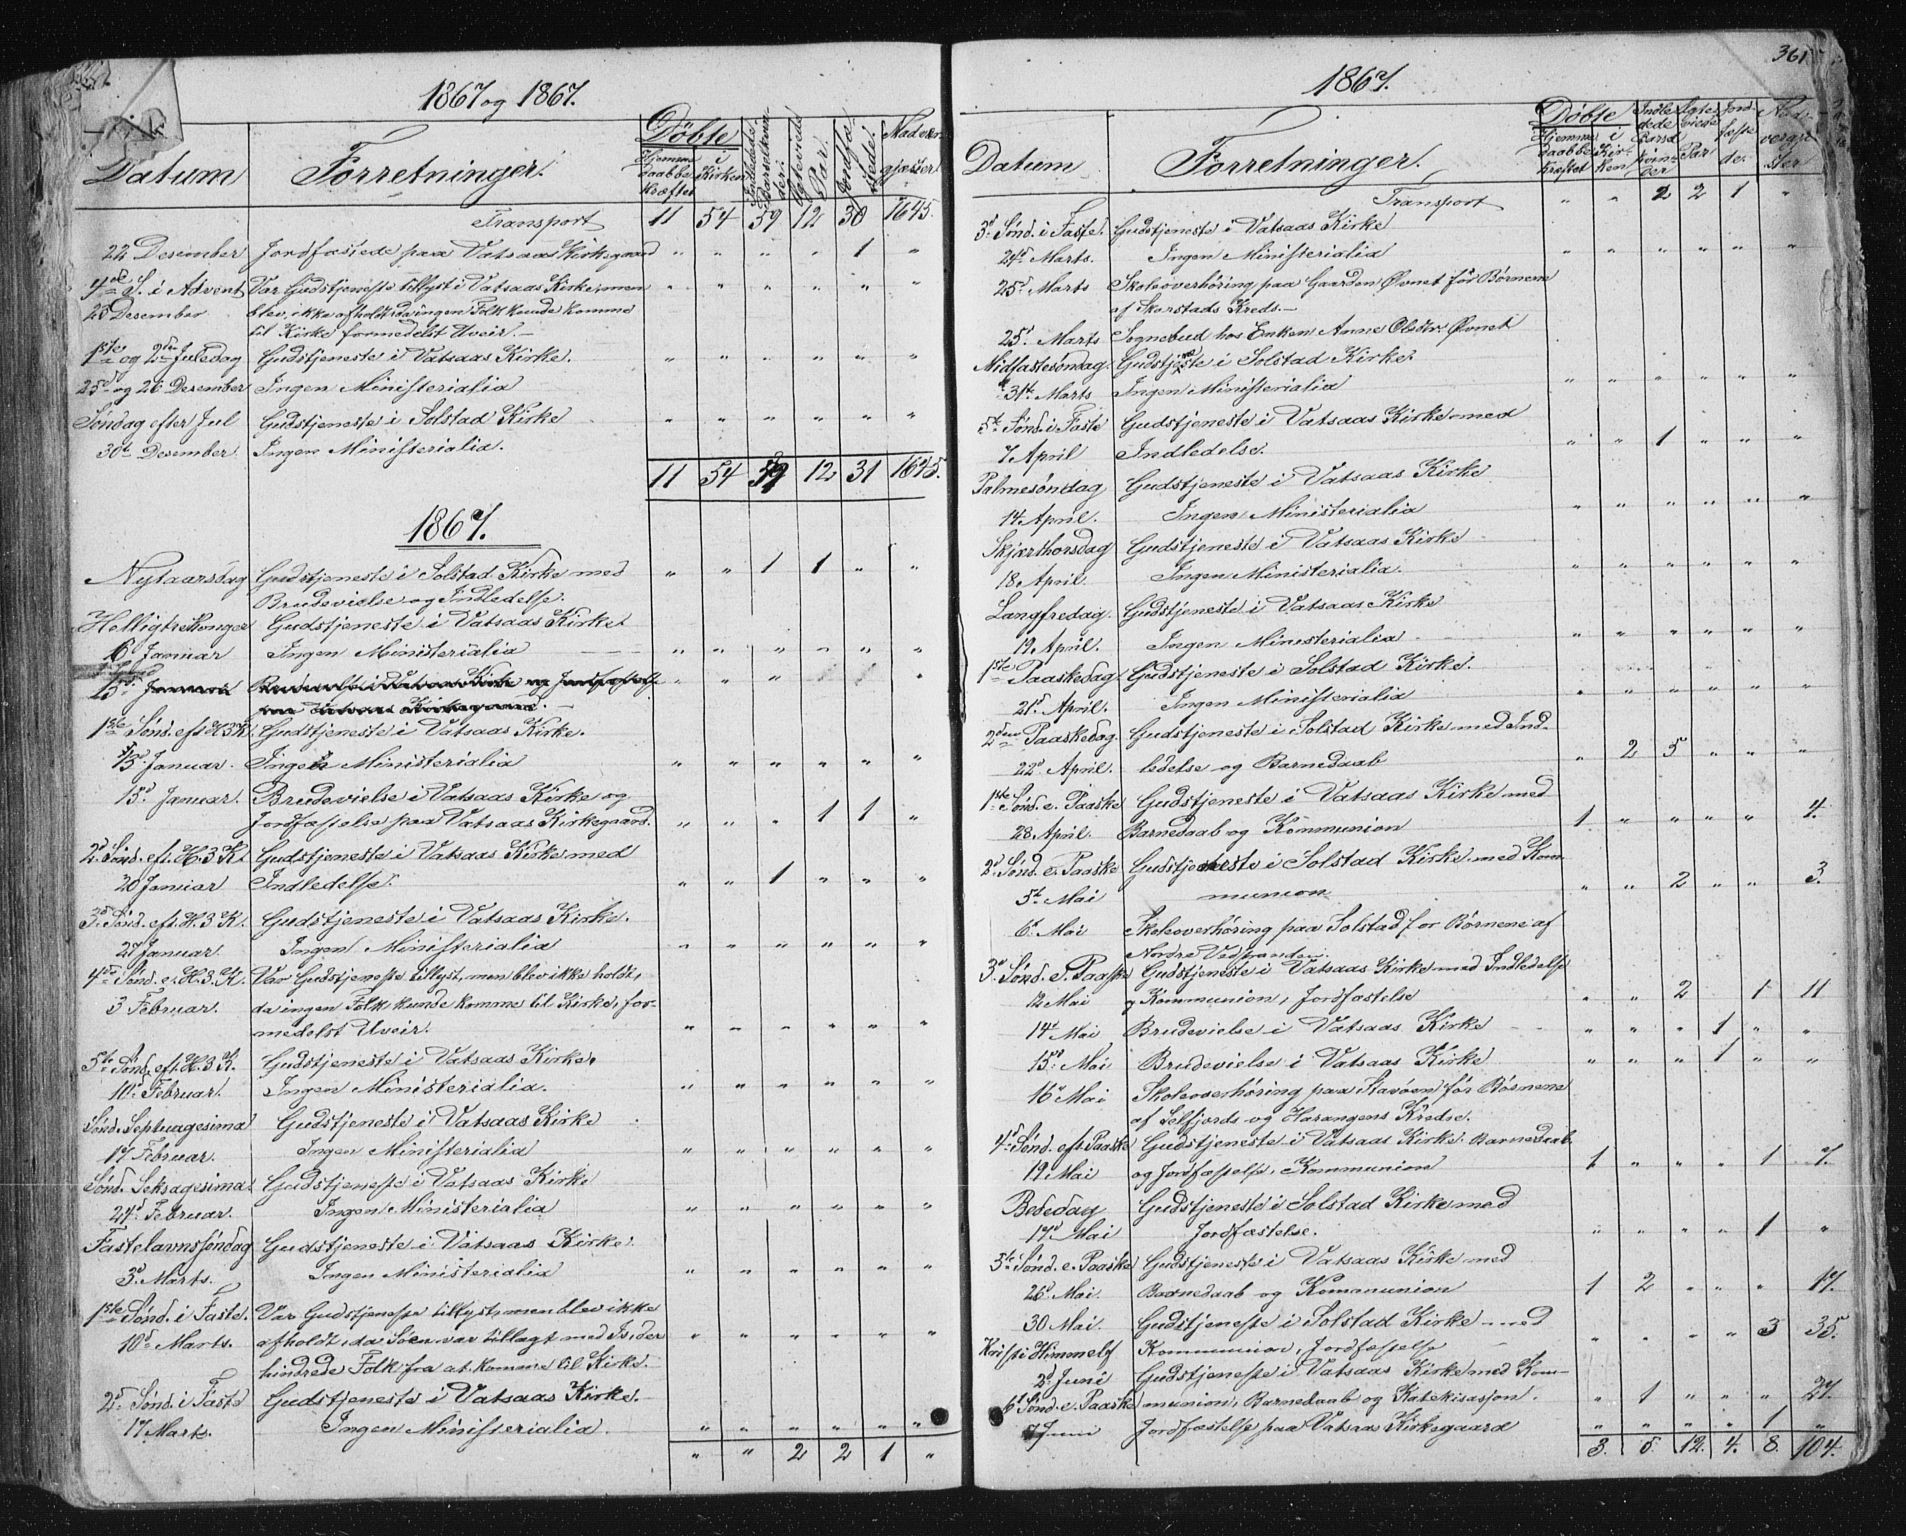 1867 og 1867.
Døbte
Datum Forretninger.
Hjemmedaabbekræftet i Kirken Indledede Barselkvinder. Ægteviede Par. Jordfæstede. Nadvergjæster
Transport 11 54 59 12 30 1645.
22 Desember Jordfæstede paa Vatsaas Kirkegaard " " " " 1 "
4de S. i Advent Var Gudstjeneste tillyst i Vatsaas Kirke, men " " " " " "
23 Desember blev ikke afholdt, da ingen Folk kunde komme
til Kirke formedelst Uveir.—
1ste og 2den Juledag Gudstjeneste i Vatsaas Kirke. " " " " " "
25d og 26 Desember Ingen Ministerialia
Søndag efter Jul Gudstjeneste i Solstad Kirke " " " " " "
30te Desember. Ingen Ministerialia.
11 54 59 12 31 1645.
1867.
Nytaarsdag Gudstjeneste i Solstad Kirke med " " 1 1 " "
Brudevielse og Indledelse.
Helligtrekonger Gudstjeneste i Vatsaas Kirke
6 Januar Ingen Ministerialia " " " " " "
15d Januar " " " "
1ste Sønd. eft H3K. Gudstjeneste i Vatsaas Kirke.
13d Januar. Ingen Ministerialia " " " " " "
15d Januar. Brudevielse i Vatsaas Kirke og
Jordfæstelse paa Vatsaas Kirkegaard. " " " 1 1 "
2d Sønd. eft. H. 3 K. Gudstjeneste i Vatsaas Kirke med
20 Januar Indledelse. " " 1 " " "
3d Sønd. eft. H. 3 K. Gudstjeneste i Vatsaas Kirke.
27 Januar. Ingen Ministerialia " " " " " "
4de Sønd. e. H. 3 K. Var Gudstjeneste tillyst, men blev ikke holdt,
3 Februar. da ingen Folk kunde komme til Kirke, for-
medelst Uveir. " " " " " "
5te Sønd. eft. H. 3 K. Gudstjeneste i Vatsaas Kirke.
10d Februar. Ingen Ministerialia. " " " " " "
Sønd. Septuagesima Gudstjeneste i Vatsaas Kirke
17 Februar. Ingen Ministerialia " " " " " "
Sønd. Seksagesima. Gudstjeneste i Vatsaas Kirke
24d Februar. Ingen Ministerialia " " " " " "
Fastelavnssøndag Gudstjeneste i Vatsaas Kirke.
3d Marts. Ingen Ministerialia " " " " " "
1ste Sønd. i Faste. Var Gudstjeneste tillyst, men blev ikke
10d Marts. afholdt, da Søen var tillagt med Is, der " " " " " "
hindrede Folk fra at komme til Kirke.
2d Sønd. i Faste Gudstjeneste i Vatsaas Kirke.
17 Marts. Ingen Ministerialia. " " " " " "
" " 2 2 1 "
361
1867.
Døbte
Datum Forretninger.
Hjemmedaabbekræftet i Kirken Indledede Barselkvinder Ægteviede Par Jordfæstede. Nadvergjæster
Transport " " 2 2 1 "
3d Sønd. i Faste. Gudstjeneste i Vatsaas Kirke
24d Marts. Ingen Ministerialia " " " " " "
25d Marts Skoleoverhøring paa Gaarden Øvnet for Børnene
af Skarstads Kreds.—
25d Marts Sognebud hos Enken Anne Olsdtr. Øvnet
Midfastesøndag. Gudstjeneste i Solstad Kirke.
31te Marts Ingen Ministerialia " " " " " "
5te Sønd. i Faste Gudstjeneste i Vatsaas Kirke med
7 April Indledelse. " " 1 " " "
Palmesøndag Gudstjeneste i Vatsaas Kirke
14 April. Ingen Ministerialia " " " " " "
Skjærthorsdag Gudstjeneste i Vatsaas Kirke
18 April. Ingen Ministerialia. " " " " " "
Langfredag. Gudstjeneste i Vatsaas Kirke
19 April. Ingen Ministerialia " " " " " "
1ste Paaskedag Gudstjeneste i Solstad Kirke.
21d April. Ingen Ministerialia " " " " " "
2den Paaskedag. Gudstjeneste i Solstad Kirke med Ind-
22d April. ledelse og Barnedaab " 2 5 " " "
1ste Sønd. e. Paaske Gudstjeneste i Vatsaas Kirke med
28 April. Barnedaab og Kommunion 1 " " " " 4.
2d Sønd. e. Paaske Gudstjeneste i Solstad Kirke med Kom-
5te Mai munion " " 2 " " 3.
6te Mai Skoleoverhøring paa Solstad for Børnene af
Nordre Vedstranden.
3d Sønd. e. Paaske Gudstjeneste i Vatsaas Kirke med Indledelse
12 Mai og Kommunion, Jordfæstelse " " 2 " 1 11
14d Mai Brudevielse i Vatsaas Kirke " " " 1 " "
15d Mai Brudevielse i Vatsaas Kirke " " " 1 " "
16d Mai Skoleoverhøring paa Stavøen for Børnene
af Selfjords og Harangens Kredse.
4d Sønd. eft. Paaske Gudstjeneste i Vatsaas Kirke. Barnedaab
19 Mai og Jordfæstelse, Kommunion 1 " " " 1 7.
Bededag Gudstjeneste i Solstad Kirke med
17d Mai Jordfæstelse. " " " " 1 "
5te Sønd. e. Paaske Gudstjeneste i Vatsaas Kirke med
26d Mai. Barnedaab og Kommunion 1 2 " " " 17.
30 Mai. Gudstjeneste i Solstad Kirke med
Kristi Himmelf Kommunion, Jordfæstelse " " " " 3 35.
2d Juni Gudstjeneste i Vatsaas Kirke med Kom-
6te Sønd. e. Paaske munion, Barnedaab og Katekisasjon. " 1 " " " 27.
7 Juni Jordfæstelse paa Vatsaas Kirkegaard " " " " 1 "
3. 5. 12. 4. 8. 104.